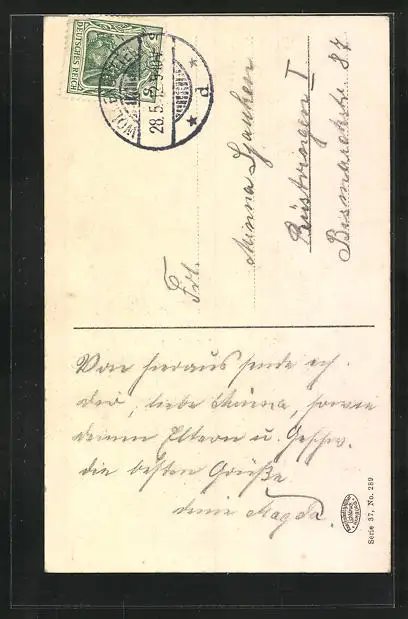 DEUTSCHES REICH
28.5.12. 9-10 V
* d *
Frl.
Minna Janssen
Rüstringen I
Bismarckstr. 87
Von hieraus sende ich
dir, liebe Minna, sowie
deinen Eltern u. Geschw.
die besten Grüße
deine Magda.
Serie 37, No. 289